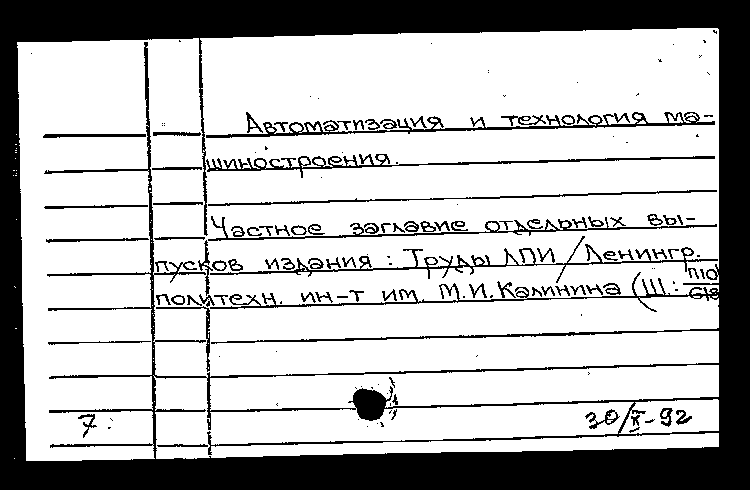 Автоматизация и технология ма-
шиностроения.
Частное заглавие отдельных вы-
пусков издания: Труды ЛПИ/Ленингр.
политехн. ин-т им. М.И. Калинина (Ш:
7.
30/X-92